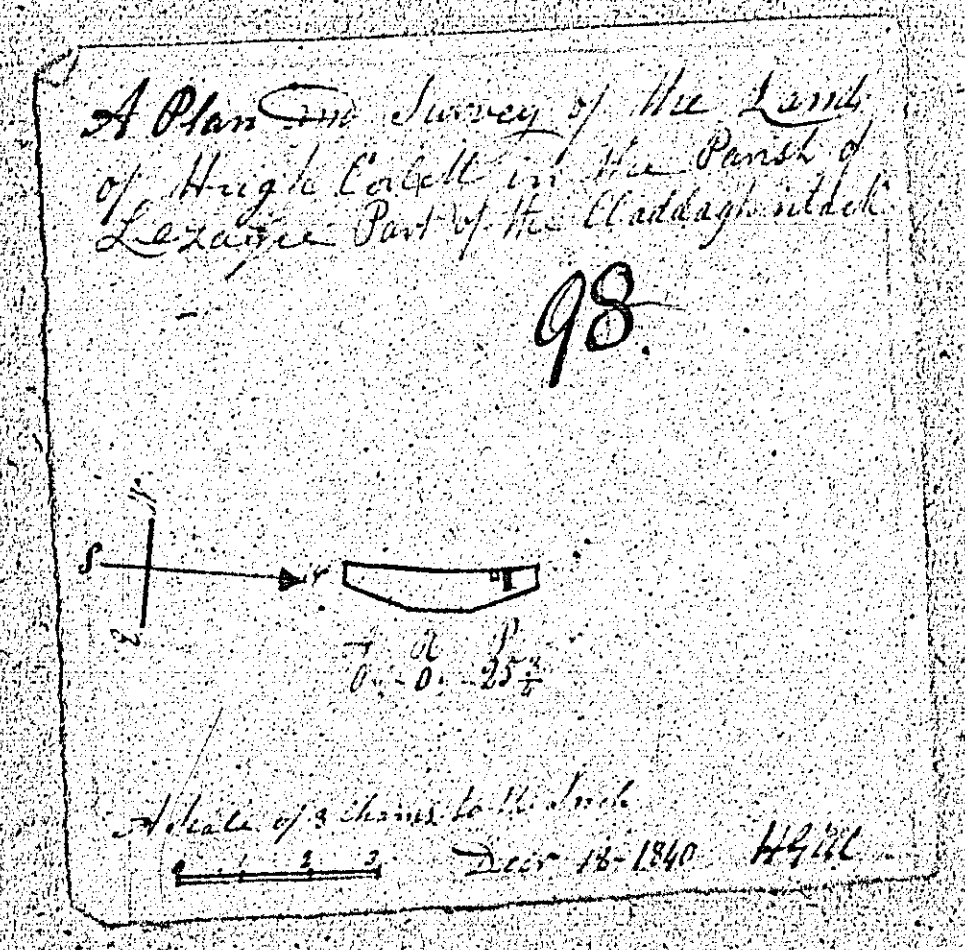 A Plan and Survey of the Land
of Hugh Corbett in the Parish of
Lezayre Part of the Claddagh
98.
W
S N
E
A R P
0 . - 0 . - 25 3/4
A Scale of 3 Chains to the Inch
0 1 2 3
Decr 18 - 1840